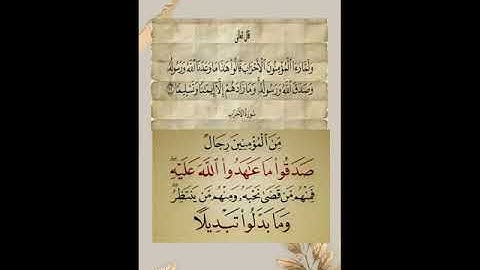 قال تعالى
وَلَمَّا رَءَا ٱلْمُؤْمِنُونَ ٱلْأَحْزَابَ قَالُوا۟ هَٰذَا مَا وَعَدَنَا ٱللَّهُ وَرَسُولُهُۥ
وَصَدَقَ ٱللَّهُ وَرَسُولُهُۥ ۚ وَمَا زَادَهُمْ إِلَّآ إِيمَٰنًا وَتَسْلِيمًا ٢٢
سُورَةُ الأَحْزَاب
مِّنَ ٱلْمُؤْمِنِينَ رِجَالٌ
صَدَقُوا۟ مَا عَٰهَدُوا۟ ٱللَّهَ عَلَيْهِ ۖ
فَمِنْهُم مَّن قَضَىٰ نَحْبَهُۥ وَمِنْهُم مَّن يَنتَظِرُ ۖ
وَمَا بَدَّلُوا۟ تَبْدِيلًا